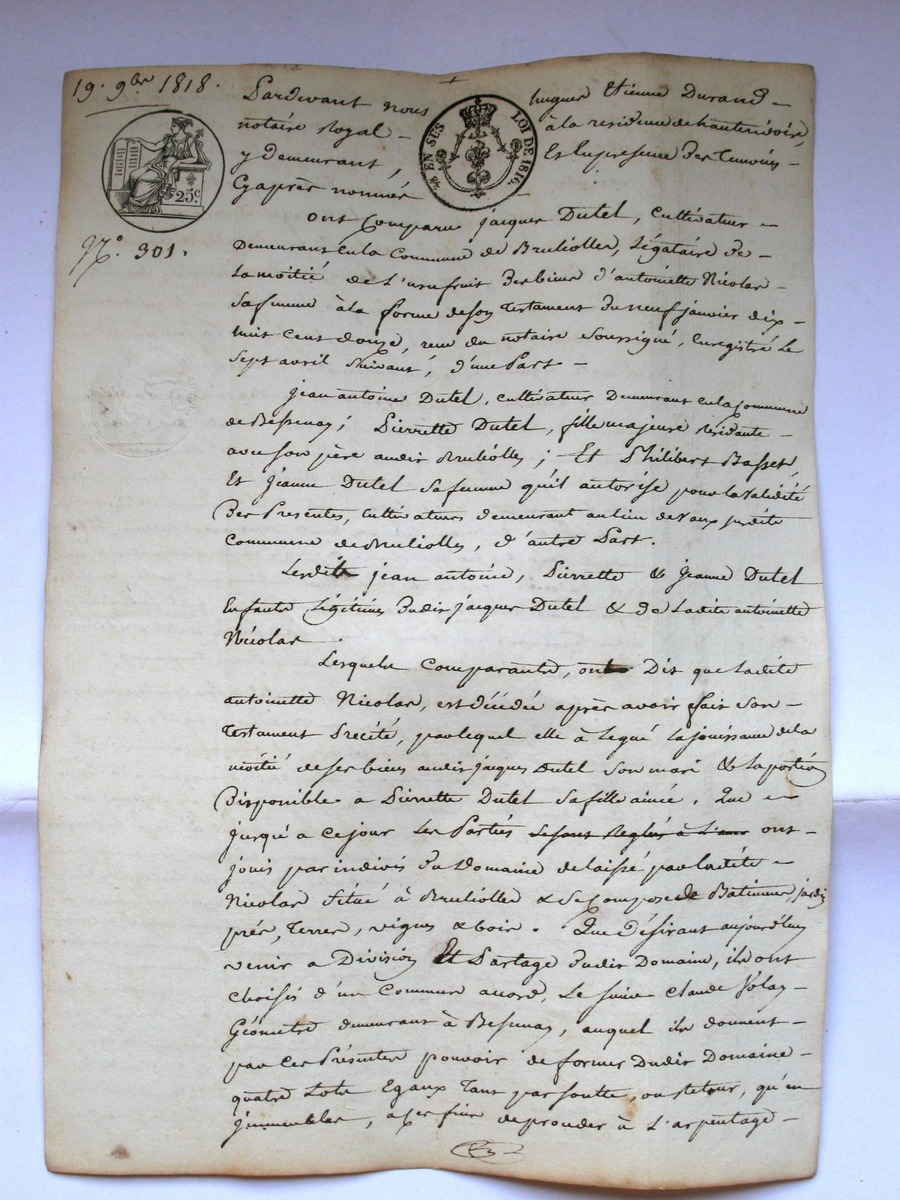 19. 9bre 1818.
Pardevant nous hugues Etienne Durand
notaire Royal à la residence de hauterivoire,
y demeurant, Et en presence des temoins
Cy après nommés
EN SUS LOI DE 1816.
25c
N.° 301.
ont Comparu jacques Dutel, Cultivateur
Demeurant en la Commune de Brullioller, Légataire de
La moitié de L'usufruit des biens d'antoinette Nicolas
Sa femme à la forme de son Testament du neuf janvier dix
huit Cent douze, reçu du notaire soussigné, Enregistré Le
Sept avril Suivant, d'une Part
jean antoine Dutel, cultivateur Demeurant en la Commune
de Bessenay; Pierrette Dutel, fille majeure residante
avec son père audit Brulioller; Et Philibert Basset,
Et jeanne Dutel sa femme qu'il autorise pour la validité
Des Presentes, Cultivateurs demeurant au lieu de vaux susdite
Commune de Brulioller, d'autre Part.
Lesdits jean antoine, Pierrette & jeanne Dutel
Enfants Légitimes dudit jacques Dutel & de Ladite antoinette
Nicolas.
Lesquels Comparants, ont Dit que Ladite
antoinette Nicolas, est décédée après avoir fait son
Testament Précité, par lequel elle à Legué La jouissance de la
moitié de ses biens audit jacques Dutel son mari & La portion
Disponible a Pierrette Dutel sa fille ainée. Que
jusqu'a ce jour Les Parties ont
jouis par indivis du Domaine delaissé par Ladite
Nicolas situé à Brulioller & Se Compose de Batiments, jardin
prés, Terres, vignes & bois. Que Désirant aujourd'huy
venir a Division Et Partage dudit Domaine, ils ont
choisis d'un Commun accord, Le sieur Claude
Géometre demeurant à Bessenay, auquel ils donnent
par Ces Présentes pouvoir de former Dudit Domaine
quatre Lots Egaux tant par soutte, ou retour, qu'en
jmmeubles, a ses fins de proceder à L'arpentage